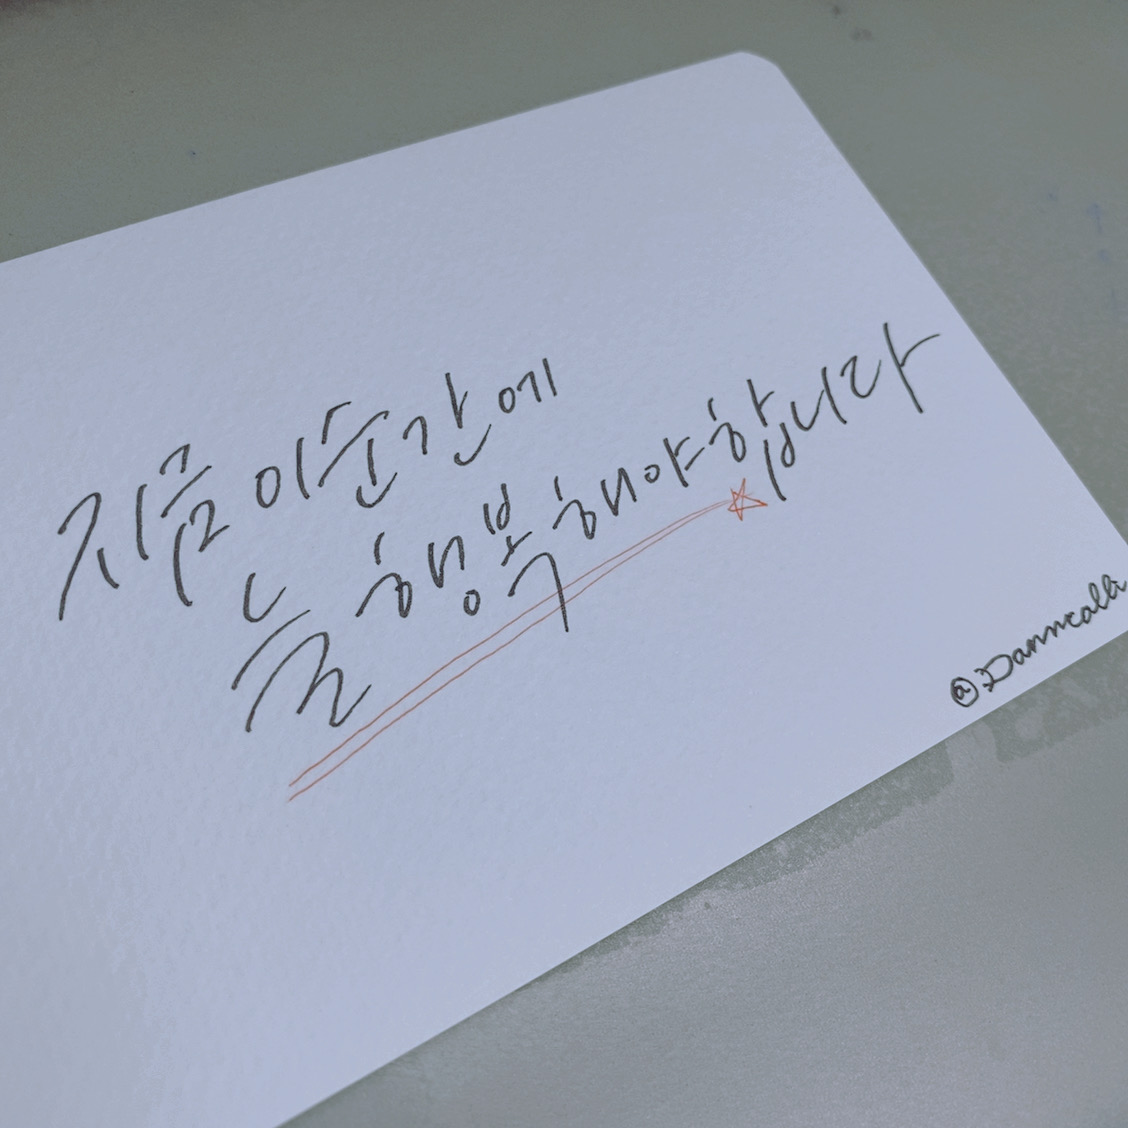 지금 이순간에
늘 행복해야합니다
@Danncalli